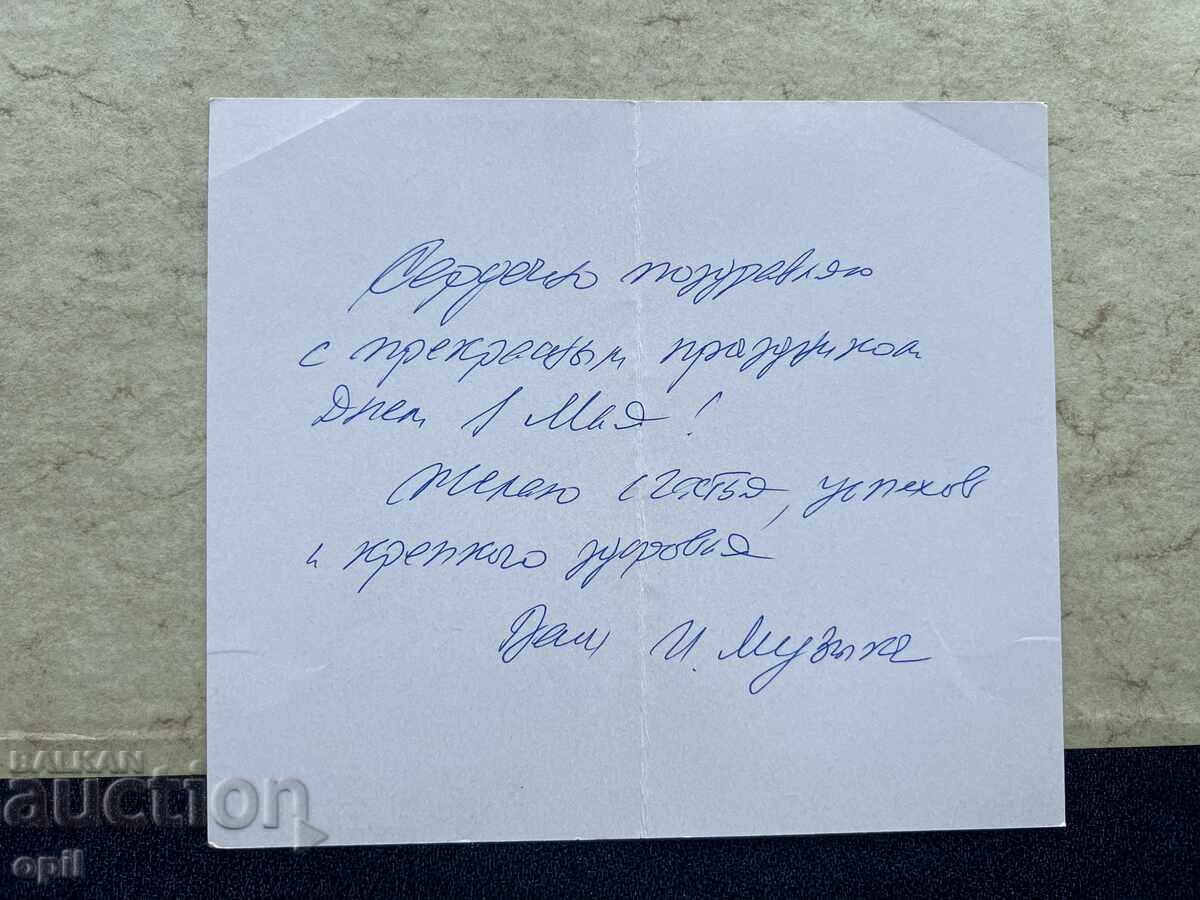 Сердечно поздравляю
с прекрасным праздником
Днем 1 Мая!
Желаю счастья, успехов
и крепкого здоровья
И. Музыка
BALKAN
auction
opil